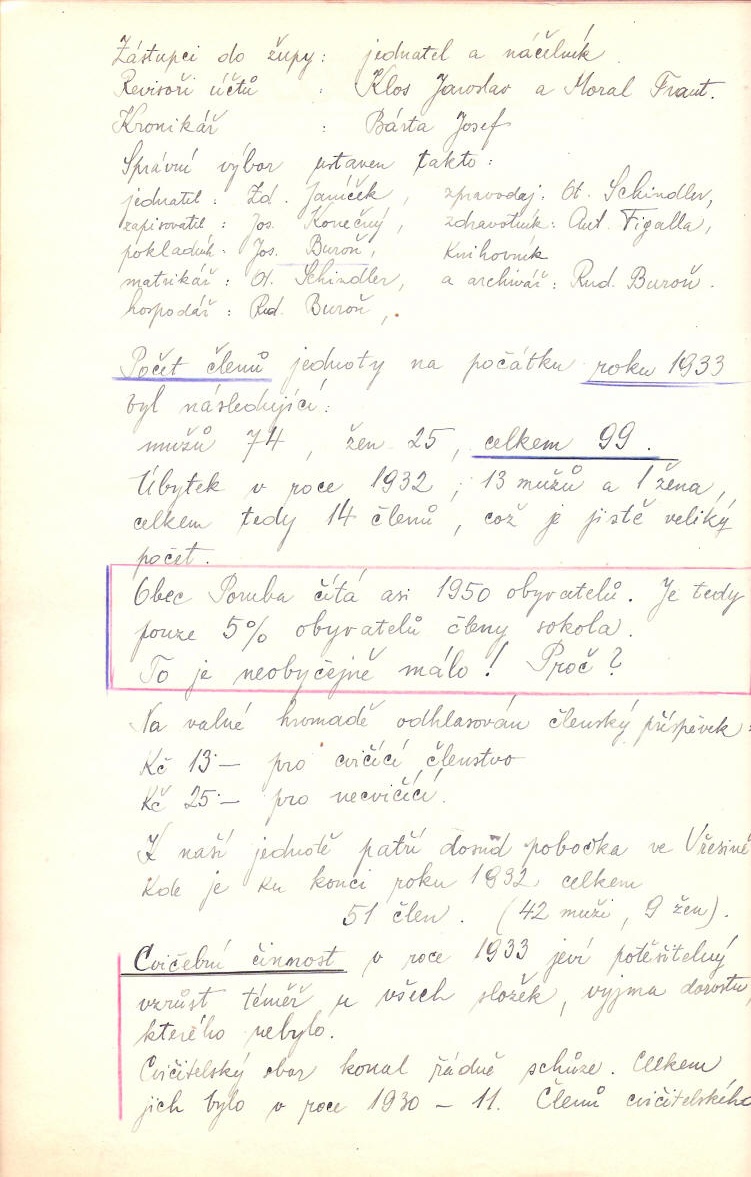 Zástupci do župy: jednatel a náčelník.
Revisoři účtů : Klos Jaroslav a Moral Frant.
Kronikář : Bárta Josef
Správní výbor ustaven takto:
jednatel: Zd. Janíček, zpravodaj: Ot. Schindler,
zapisovatel: Jos. Konečný, zdravotník: Ant. Figalla,
pokladník: Jos. Buroň, knihovník
matrikář: Ot. Schindler, a archivář: Rud. Buroň.
hospodář: Rud. Buroň,
Počet členů jednoty na počátku roku 1933
byl následující:
mužů 74, žen 25, celkem 99.
Úbytek v roce 1932; 13 mužů a 1 žena,
celkem tedy 14 členů, což je jistě veliký
počet.
Obec Poruba čítá asi 1950 obyvatelů. Je tedy
pouze 5% obyvatelů členy sokola.
To je neobyčejně málo! Proč?
Na valné hromadě odhlasován členský příspěvek:
Kč 13·— pro cvičící členstvo
Kč 25·— pro necvičící.
K naší jednotě patří dosud pobočka ve Vřesině
kde je ku konci roku 1932 celkem
51 člen. (42 muži, 9 žen).
Cvičební činnost v roce 1933 jeví potěšitelný
vzrůst téměř u všech složek, vyjma dorostu,
kterého nebylo.
Cvičitelský sbor konal řádné schůze. Celkem
jich bylo v roce 1930 – 11. Členů cvičitelského